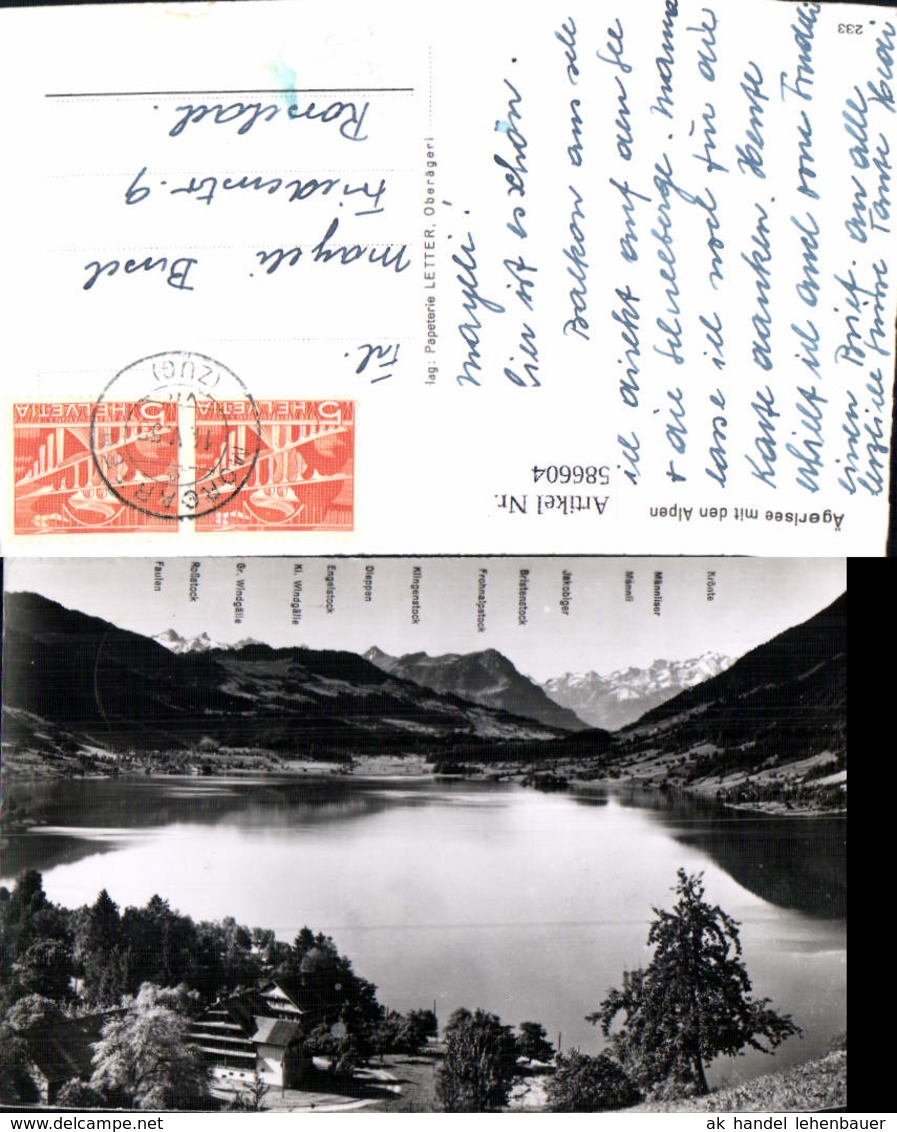 233
Mayeli!
hier ist es schön.
Balkon am See
direkt auf den See
+ die Schneeberge. Mamma
lasse ich noch für die
Karte danken. Heute
erhielt ich auch von Trudi
einen Brief. an alle
herzliche Grüsse Tante
lag: Papeterie LETTER, Oberägeri
Frl.
Mayeli
Friedenstr. 9
Rorschach.
HELVETIA 5
HELVETIA 5
MORGARTEN
(ZUG)
Artikel Nr.
586604
Ägerisee mit den Alpen
Faulen
Roßstock
Gr. Windgälle
Kl. Windgälle
Engelstock
Dieppen
Klingenstock
Frohnalpstock
Bristenstock
Jakobiger
Männli
Männliser
Krönte
ak handel lehenbauer